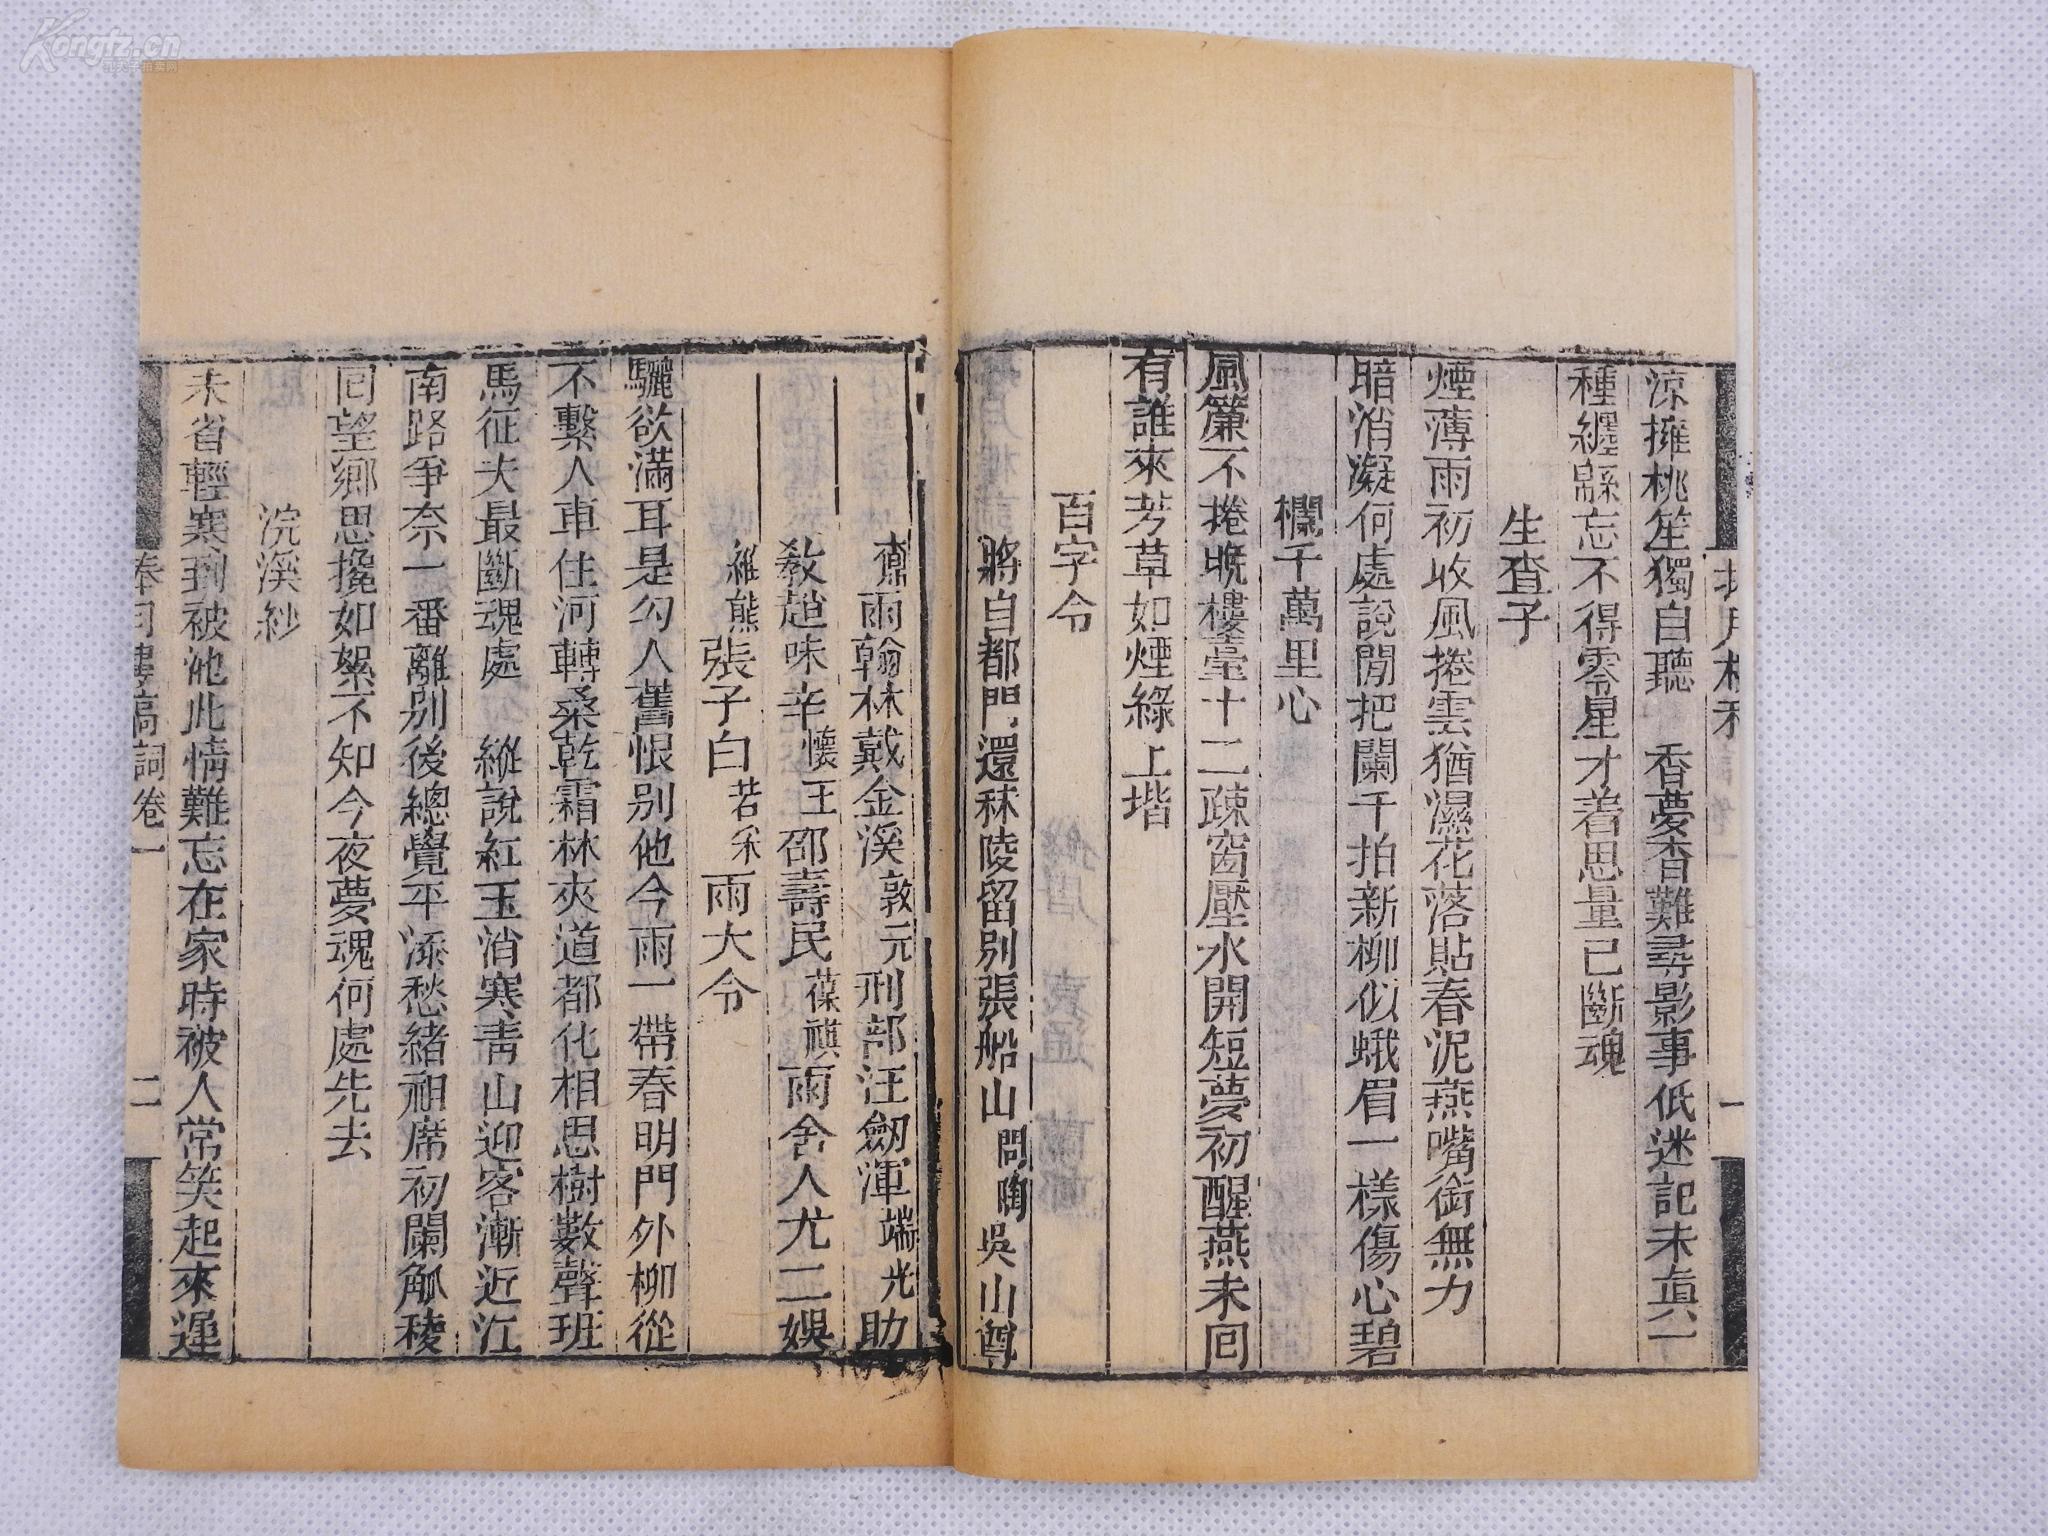 涼擁桃笙獨自聽　香夢杳難尋影事低迷記未眞一
種纏緜忘不得零星才着思量已斷魂
生查子
煙薄雨初收風捲雲猶濕花落貼春泥燕嘴銜無力
暗消凝何處說閒把闌干拍新柳似蛾眉一樣傷心碧
欄干萬里心
風簾不捲晚樓臺十二疎窗壓水開短夢初醒燕未囘
有誰來芳草如煙綠上堦
百字令
將自都門還秣陵留別張船山問陶吳山尊
鼒雨翰林戴金溪敦元刑部汪劒潭端光助
敎趙味辛懷玉邵壽民葆祺兩舍人尤二娛
維熊張子白若采兩大令
驪欲滿耳是勾人舊恨別他今雨一帶春明門外柳從
不繫人車住河轉桑乾霜林夾道都化相思樹數聲班
馬征夫最斷魂處　縱說紅玉消寒靑山迎客漸近江
南路爭奈一番離別後總覺平添愁緖祖席初闌觚稜
囘望鄉思攙如絮不知今夜夢魂何處先去
浣溪紗
未省輕寒到被池此情難忘在家時被人常笑起來遲
捧月樓稿詞卷一
二
Kongfz.cn
孔夫子拍卖网